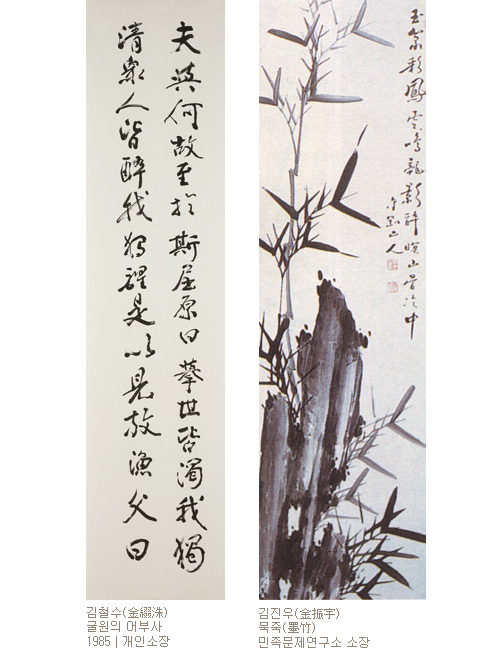 夫與何故至於斯屈原曰擧世皆濁我獨
清衆人皆醉我獨醒是以見放漁父曰
玉 彩鳳 鳴龍影 山 中
山人
김철수(金綴洙)
굴원의 어부사
1985 | 개인소장
김진우(金振宇)
묵죽(墨竹)
민족문제연구소 소장